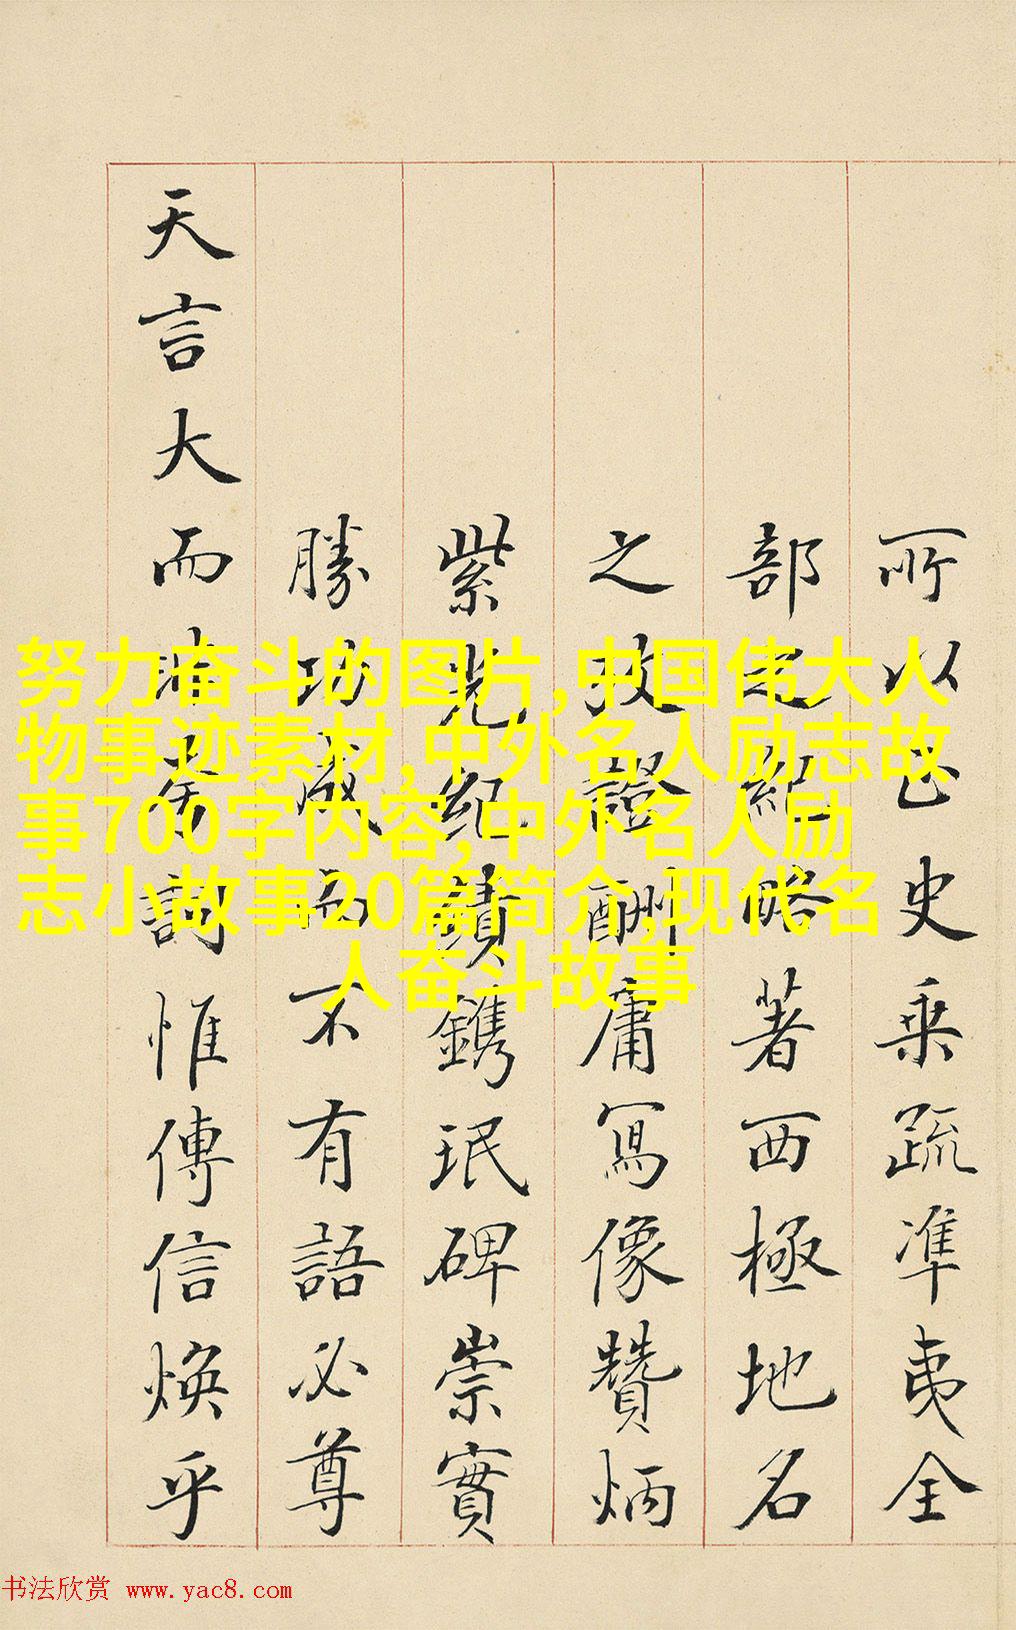 所以史乗疏準夷全
部紀略著西極地名
之攷證酬庸寫像贊炳
紫光紀績鐫珉碑崇實
勝功成而不有語必尊
天言大而詞惟傳信煥乎
努力奋斗的图片,中国伟大人
物事迹素材,中外名人励志故
事700字内容,中外名人励
志小故事20篇简介,现代名
人奋斗故事
书法欣赏 www.yac8.com